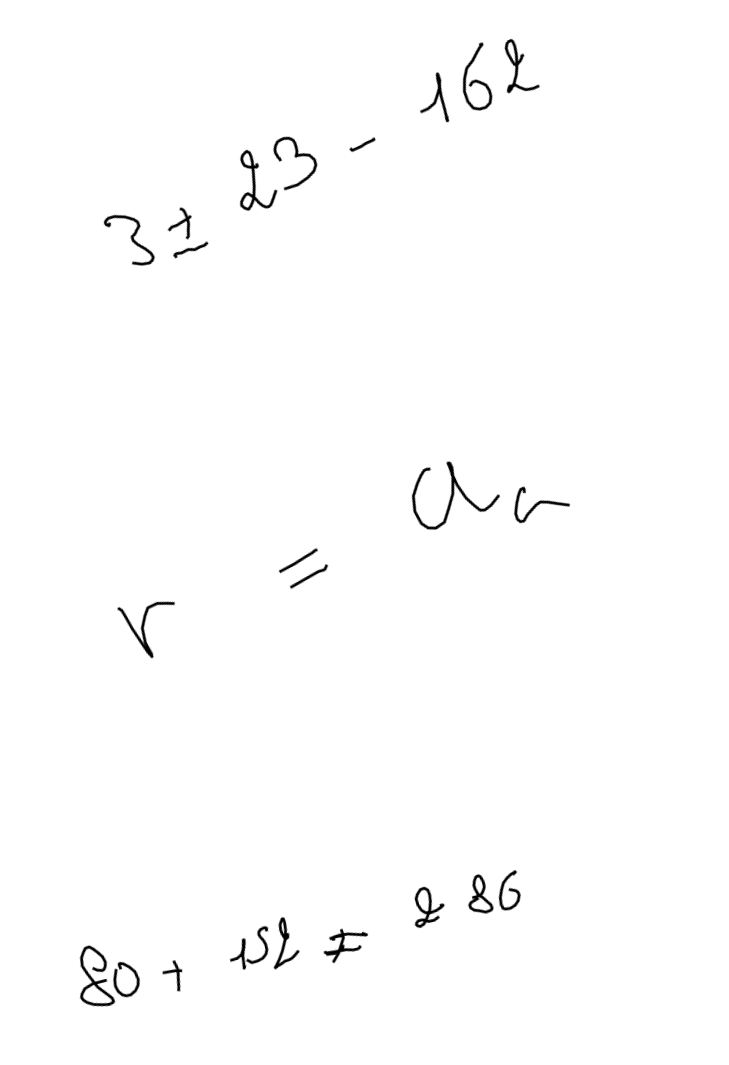 3 ± 23 - 162
r = a r
80 + 152 ≠ 286